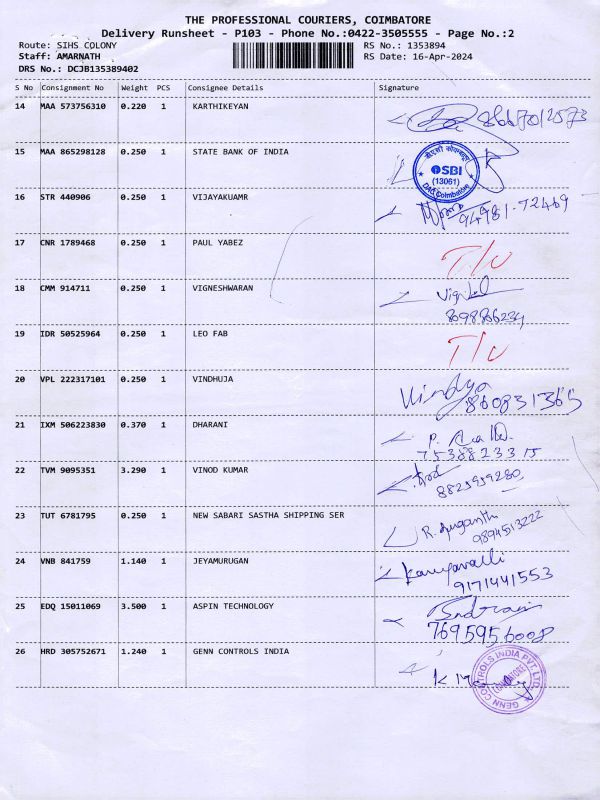 THE PROFESSIONAL COURIERS, COIMBATORE
Delivery Runsheet - P103 - Phone No.:0422-3505555 - Page No.:2
Route: SIHS COLONY RS No.: 1353894
Staff: AMARNATH RS Date: 16-Apr-2024
DRS No.: DCJB135389402
S No Consignment No Weight PCS Consignee Details Signature
14 MAA 573756310 0.220 1 KARTHIKEYAN 8667012573
15 MAA 865298128 0.250 1 STATE BANK OF INDIA
SBI
(13061)
Coimbatore
16 STR 440906 0.250 1 VIJAYAKUAMR
94981-72469
17 CNR 1789468 0.250 1 PAUL YABEZ
18 CMM 914711 0.250 1 VIGNESHWARAN
8098866234
19 IDR 50525964 0.250 1 LEO FAB
20 VPL 222317101 0.250 1 VINDHUJA Vindya
860831365
21 IXM 506223830 0.370 1 DHARANI
7538823315
22 TVM 9095351 3.290 1 VINOD KUMAR
8825959280
23 TUT 6781795 0.250 1 NEW SABARI SASTHA SHIPPING SER R. Suganthi
9894513222
24 VNB 841759 1.140 1 JEYAMURUGAN Karupavalli
9171441553
25 EDQ 15011069 3.500 1 ASPIN TECHNOLOGY
7695956008
26 HRD 305752671 1.240 1 GENN CONTROLS INDIA
GENN CONTROLS INDIA PVT. LTD.
COIMBATORE